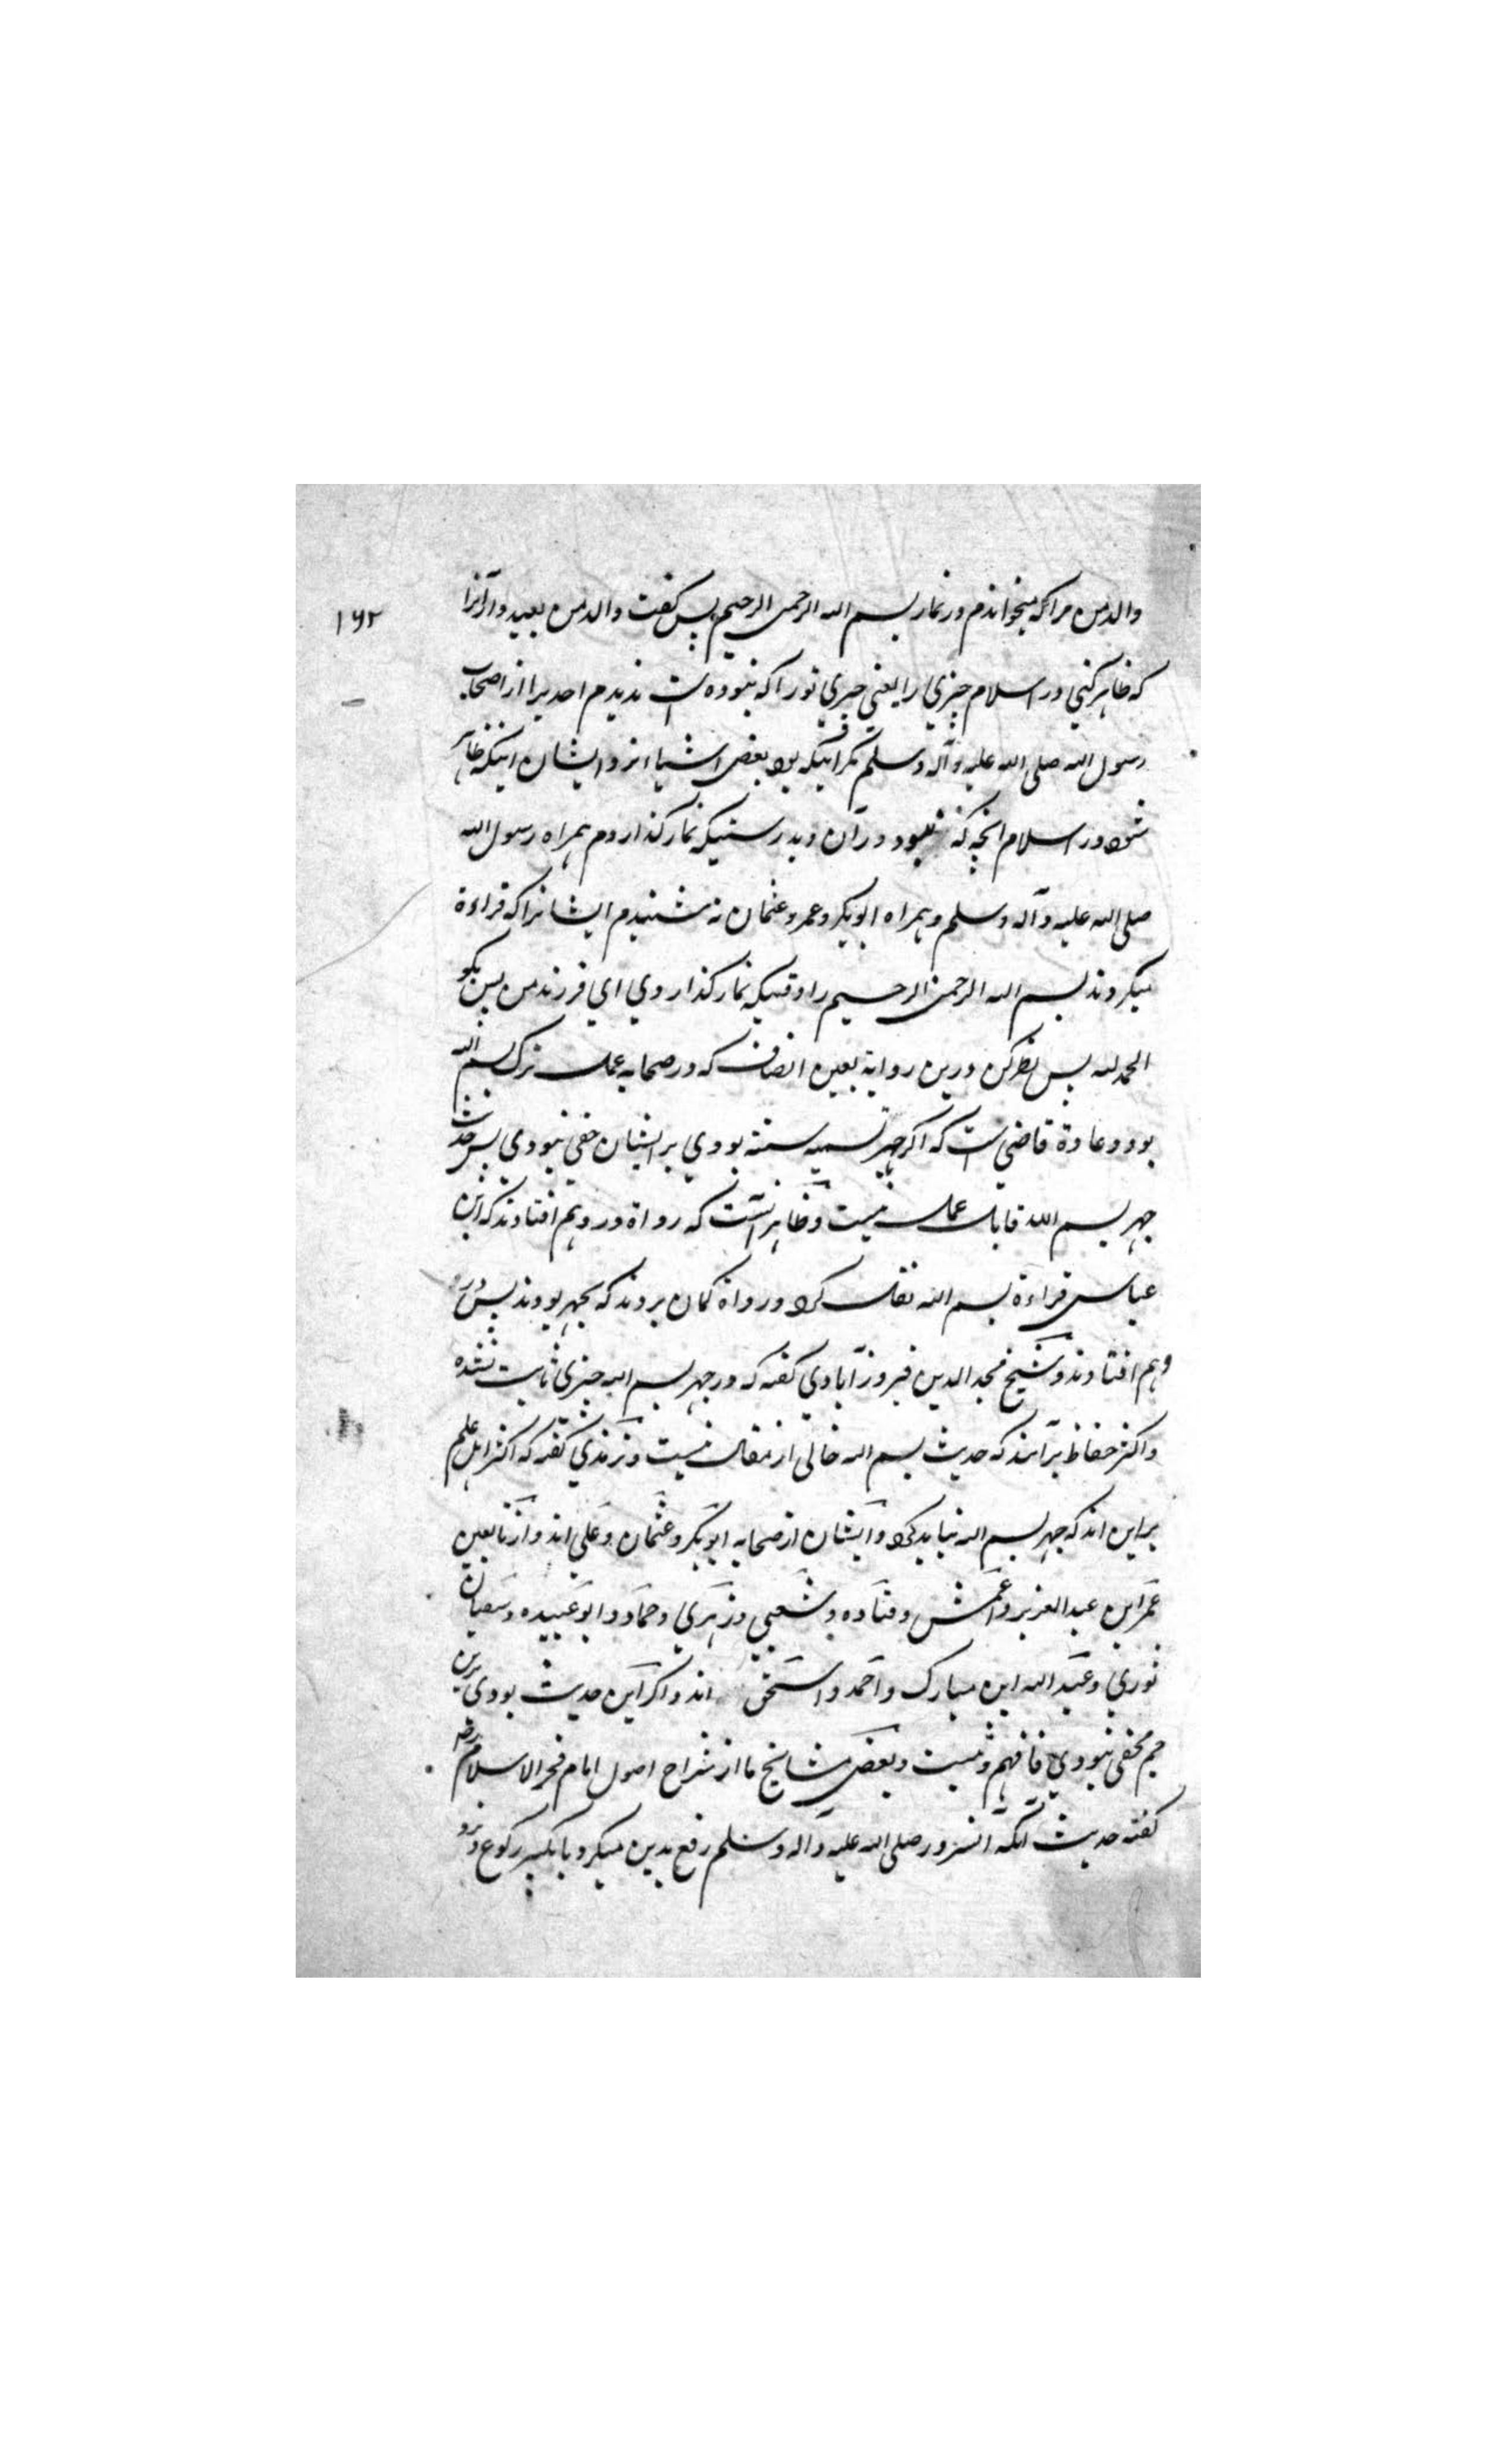 ۱۶۲
والد من مرا که میخواندم در نماز بسم الله الرحمن الرحیم پس گفت والد من بعید دار آنرا
که ظاهر کنی در اسلام چیزی را یعنی چیزی نو را که نبوده است ندیدم احدیرا از اصحاب
رسول الله صلی الله علیه وآله وسلم مگر اینکه بود بغض اشیاء نزد ایشان اینکه ظاهر
شود در اسلام انچه که نبود در آن و بدرستیکه نماز گذاردم همراه رسول الله
صلی الله علیه وآله وسلم وهمراه ابوبکر وعمر وعثمان نه شنیدم ایشانرا که قراءة
میکردند بسم الله الرحمن الرحیم را وقتیکه نماز گذاردی ای فرزند من پس بگو
الحمدلله پس نظر کن درین روایة بعین انصاف که در صحابه عمل ترک بسم الله
بود و عادة قاضی است که اگر جهر تسمیه سنة بودی بر ایشان خفی نبودی پس حدیث
جهر بسم الله قابل عمل نیست و ظاهر آنست که رواة در وهم افتادند که ابن
عباس قراءة بسم الله نقل کرد و رواة گمان بردند که بجهر بودند پس در
وهم افتادند وشیخ مجد الدین فیروزآبادی گفته که در جهر بسم الله چیزی ثابت نشده
و اکثر حفاظ برآنند که حدیث بسم الله خالی از مقال نیست وترمذی گفته که اکثر اهل علم
براین اند که جهر بسم الله نباید کرد وایشان از صحابه ابوبکر وعثمان وعلی اند و از تابعین
عمر ابن عبد العزیز واعمش وقتاده وشعبی وزهری وحماد وابوعبیده وسفیان
ثوری وعبد الله ابن مبارک واحمد واسحق اند و اگر این حدیث بودی برین
جم مخفی نبودی فافهم وثبت وبعض مشایخ ما از شراح اصول امام فخر الاسلام
گفته حدیث آنکه آنسرور صلی الله علیه وآله وسلم رفع یدین میکرد با تکبیر رکوع ونزد